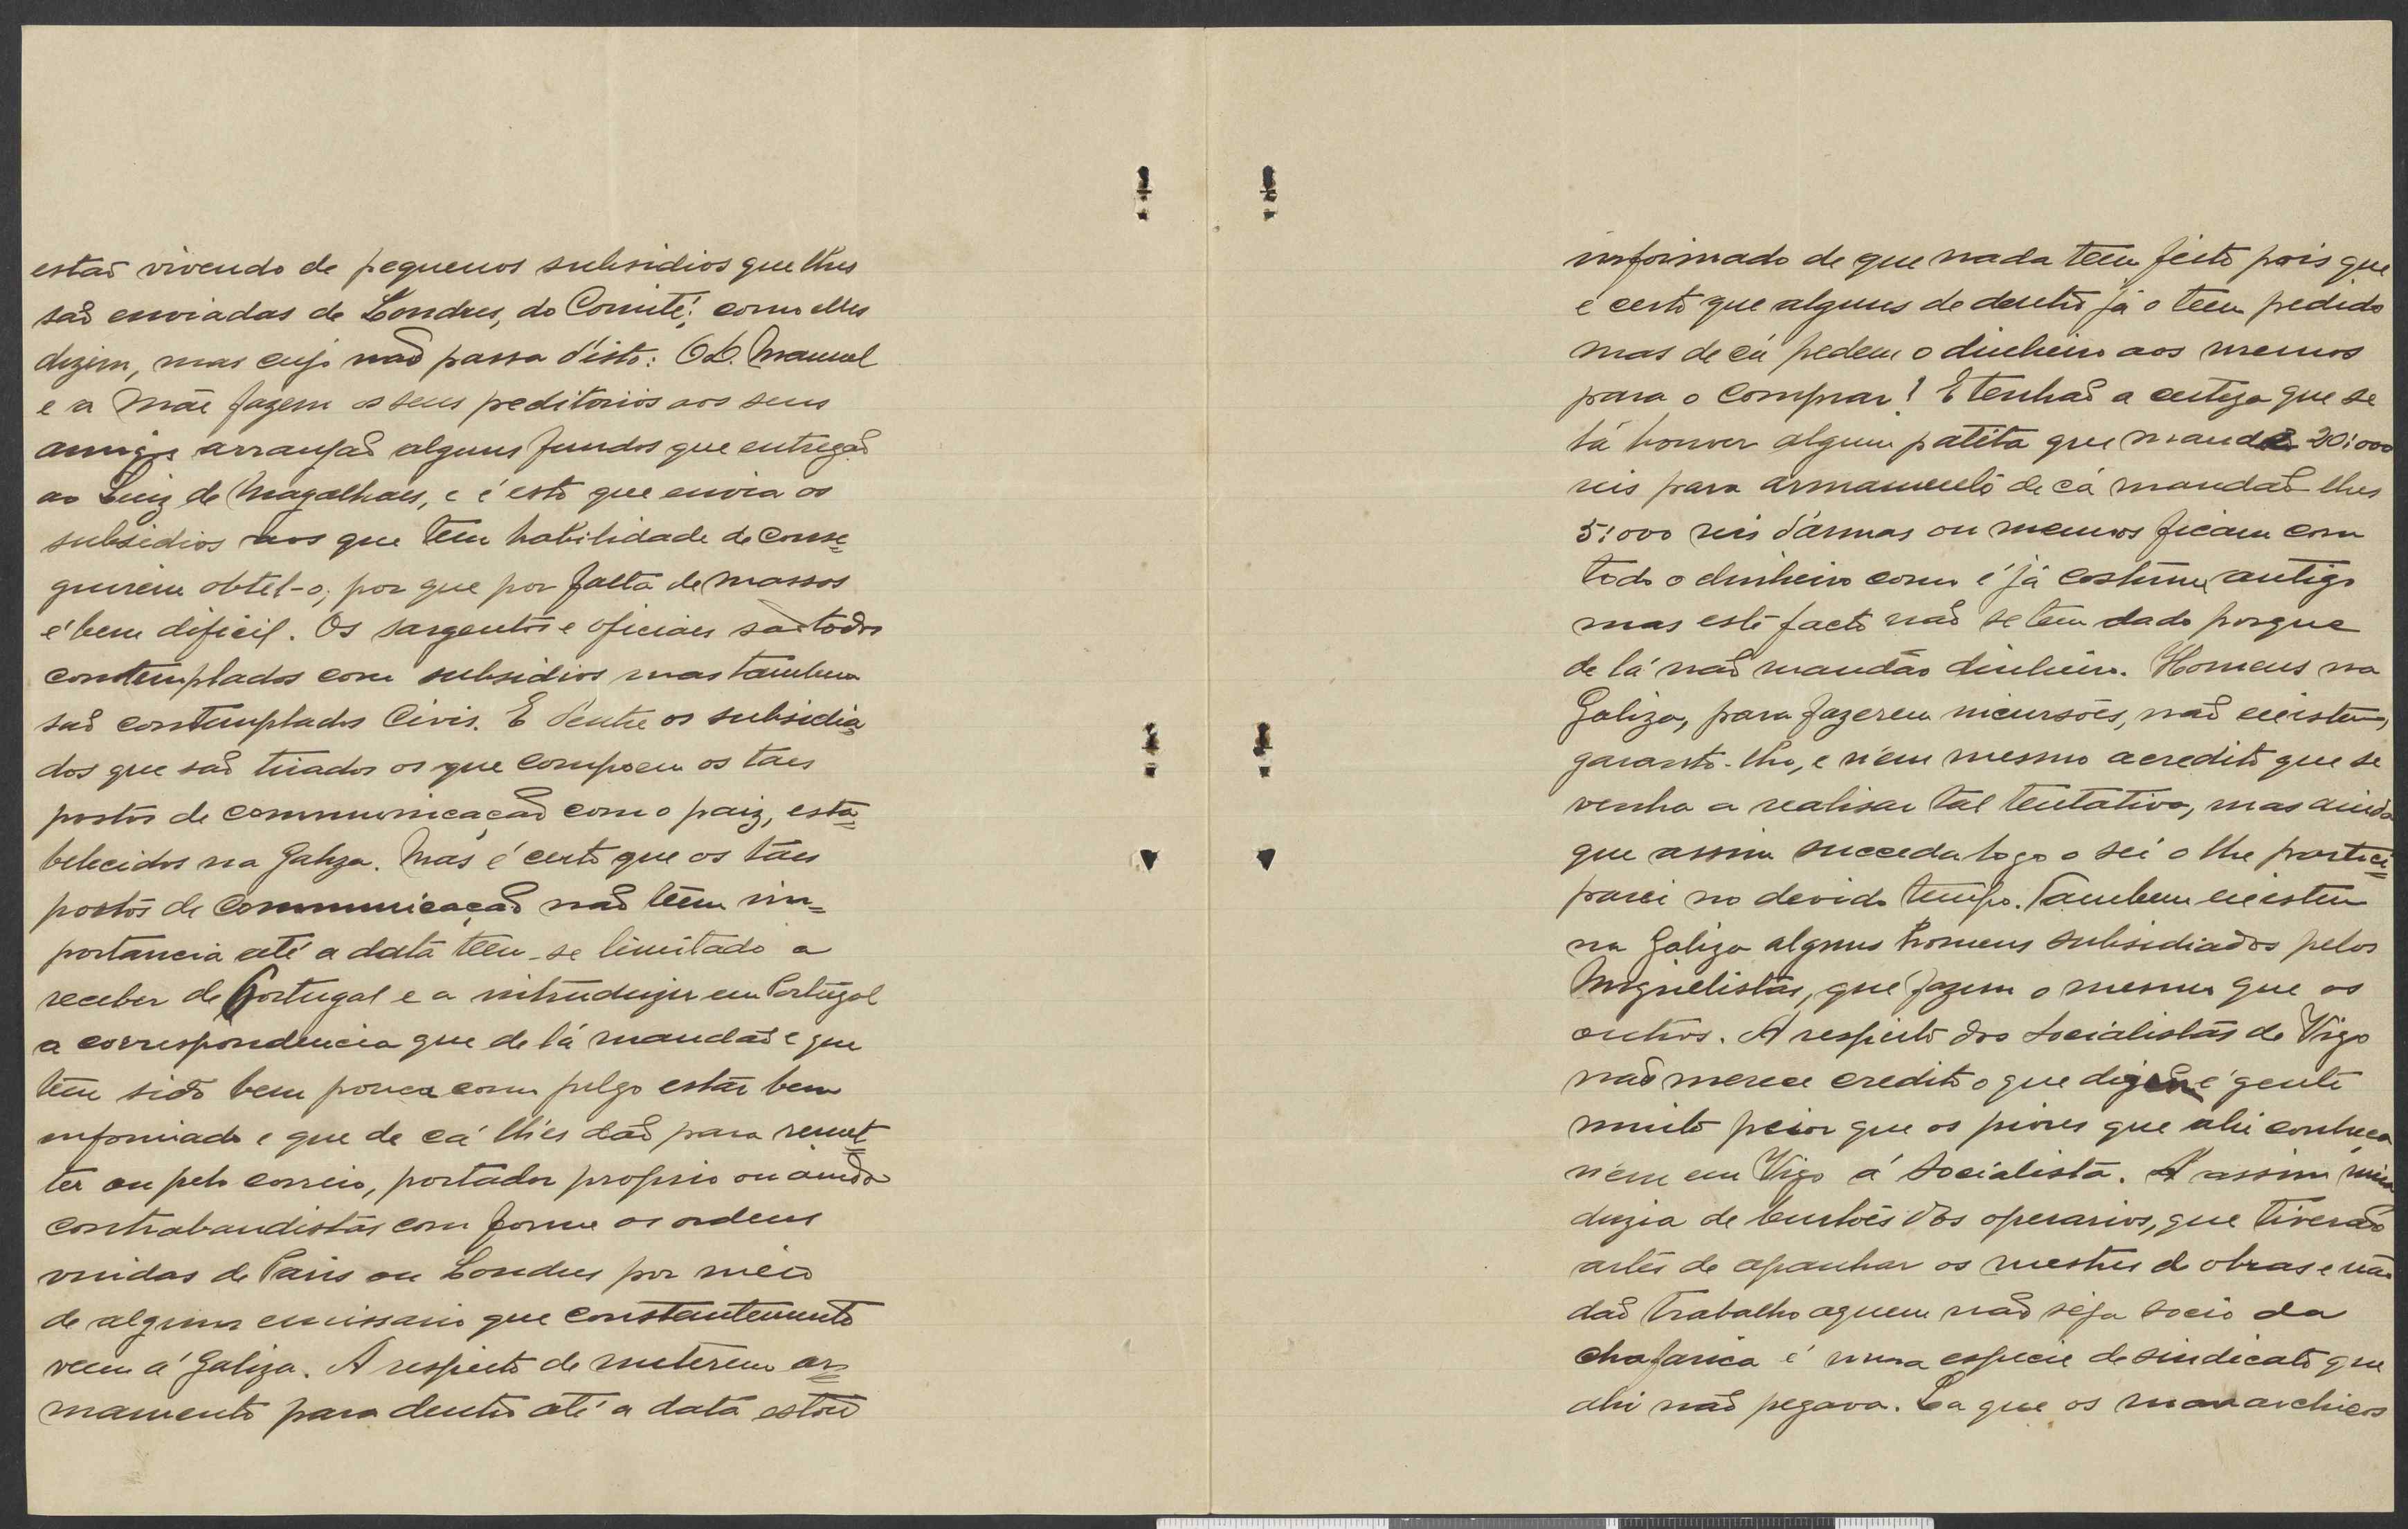 estaõ vivendo de pequenos subsidios que lhes
saõ enviadas de Londres, do Comité; como elles
dizem, mas cujo naõ passa d'isto: O D. Manuel
e a Mãe fazem os seus peditorios aos seus
amigos arranjaõ alguns fundos que entregaõ
ao Luiz de Magalhaes, e é este que envia os
subsidios aos que tem habilidade de conse=
guirem obtel-o, por que por falta de massos
é bem dificil. Os sargentos e oficiaes saõ todos
contemplados com subsidios mas tambem
saõ contemplados Civis. E d'entre os subsidia=
dos que saõ tirados os que compoem os taes
postos de communicaçaõ com o paiz, esta=
belecidos na Galiza. Mas é certo que os taes
postos de Communicaçaõ naõ têm im=
portancia até a data teem-se limitado a
receber de Portugal e a introduzir em Portugal
a correspondencia que de lá mandaõ e que
tem sido bem pouca como julgo estar bem
informado e que de cá lh'es daõ para remet=
ter ou pelo correio, portador proprio ou ainda
contrabandistas com forme as ordens
vindas de Paris ou Londres por meio
de algum emissario que constantemente
veem á Galiza. A respeito de meterem ar=
mamento para dentro até a data estou
informado de que nada teem feito pois que
é certo que alguns de dentro já o teem pedido
mas de cá pedem o dinheiro aos mesmos
para o comprar! E tenhaõ a certeza que se
lá houver algum patêta que mande 20:000
reis para armamento de cá mandaõ lhes
5:000 reis d'armas ou menos ficam com
todo o dinheiro como é já costume antigo
mas este facto naõ se tem dado porque
de lá naõ mandão dinheiro. Homens na
Galiza, para fazerem incursões, naõ existem,
garanto-lho, e nem mesmo acredito que se
venha a realisar tal tentativa, mas ainda
que assim succeda logo o sei o lhe partici=
parei no devido tempo. Tambem existem
na Galiza alguns homens subsidiados pelos
Miguelistas, que fazem o mesmo que os
outros. A respeito dos Socialistas de Vigo
naõ merece credito o que dizem é gente
muito peior que os piores que ahi conheça
nem em Vigo á Socialista. A assim uma
duzia de burlões dos operarios, que tiveraõ
artes de apanhar os mestres de obras e naõ
daõ trabalho aquem naõ seja socio da
chafarica é uma especie de sindicato que
ahi naõ pegava. La que os monarchicos